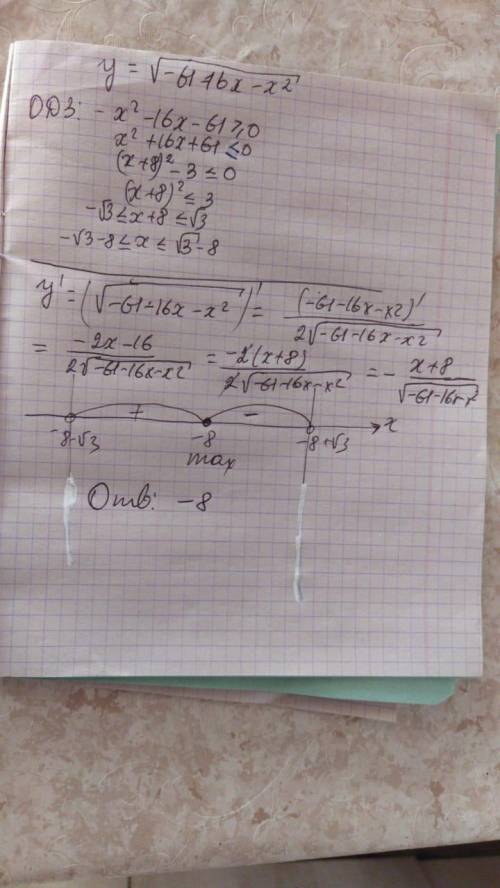 y = √-61-16x-x²
ОДЗ: -x²-16x-61≥0
x²+16x+61≤0
(x+8)²-3≤0
(x+8)²≤3
-√3≤x+8≤√3
-√3-8≤x≤√3-8
y' = (√-61-16x-x²)' = (-61-16x-x²)' / 2√-61-16x-x²
= -2x-16 / 2√-61-16x-x² = -2(x+8) / 2√-61-16x-x² = - x+8 / √-61-16x-x²
+ -
-8-√3 -8 -8+√3 x
max
Отв: -8